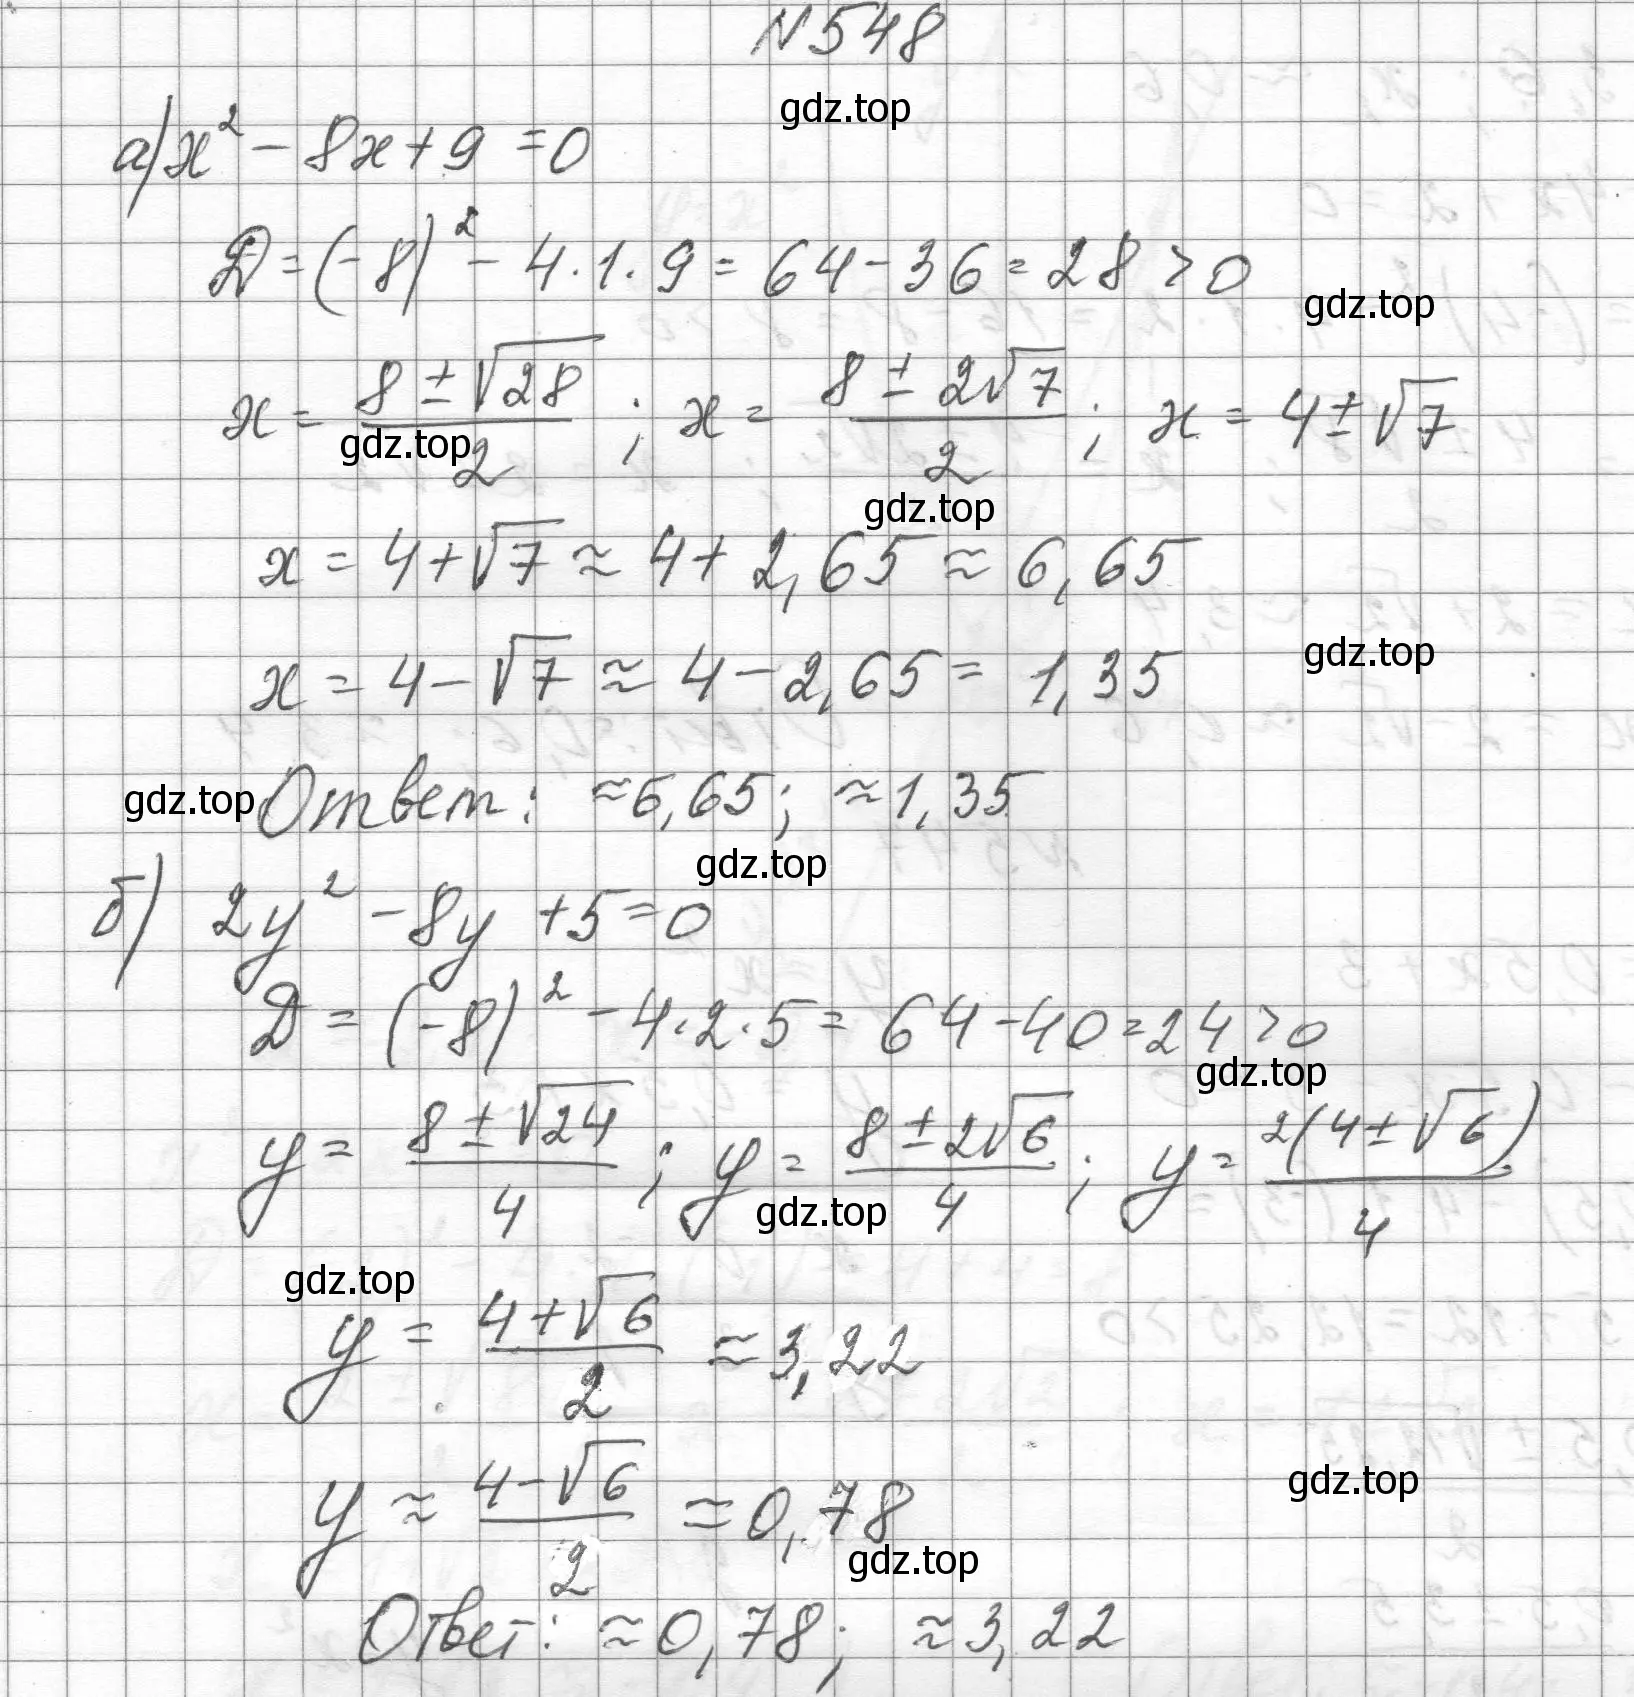 N548
gdz.top
а) x² - 8x + 9 = 0
D = (-8)² - 4·1·9 = 64 - 36 = 28 > 0
gdz.top
x = (8 ± √28)/2 ; x = (8 ± 2√7)/2 ; x = 4 ± √7
gdz.top
gdz.top
x = 4 + √7 ≈ 4 + 2,65 ≈ 6,65
gdz.top
x = 4 - √7 ≈ 4 - 2,65 = 1,35
gdz.top
Ответ: ≈6,65; ≈1,35
gdz.top
б) 2y² - 8y + 5 = 0
D = (-8)² - 4·2·5 = 64 - 40 = 24 > 0
gdz.top
y = (8 ± √24)/4 ; y = (8 ± 2√6)/4 ; y = 2(4 ± √6)/4
gdz.top
gdz.top
y = (4 + √6)/2 ≈ 3,22
gdz.top
y ≈ (4 - √6)/2 ≈ 0,78
gdz.top
Ответ: ≈0,78; ≈3,22